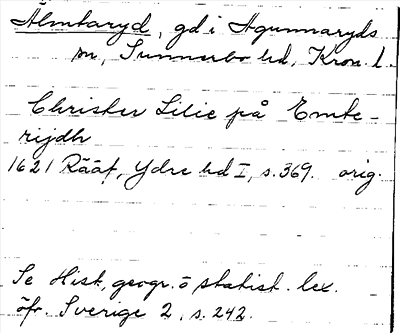 Älmtaryd, gd i Agunnaryds
sn, Sunnerbo hd, Kron. l.
Christer Lilie på Emte-
rijdh
1621 Rääf, Ydre hd I, s. 369. orig.
Se Hist. geogr. o statist. lex.
öfr. Sverige 2, s. 242.